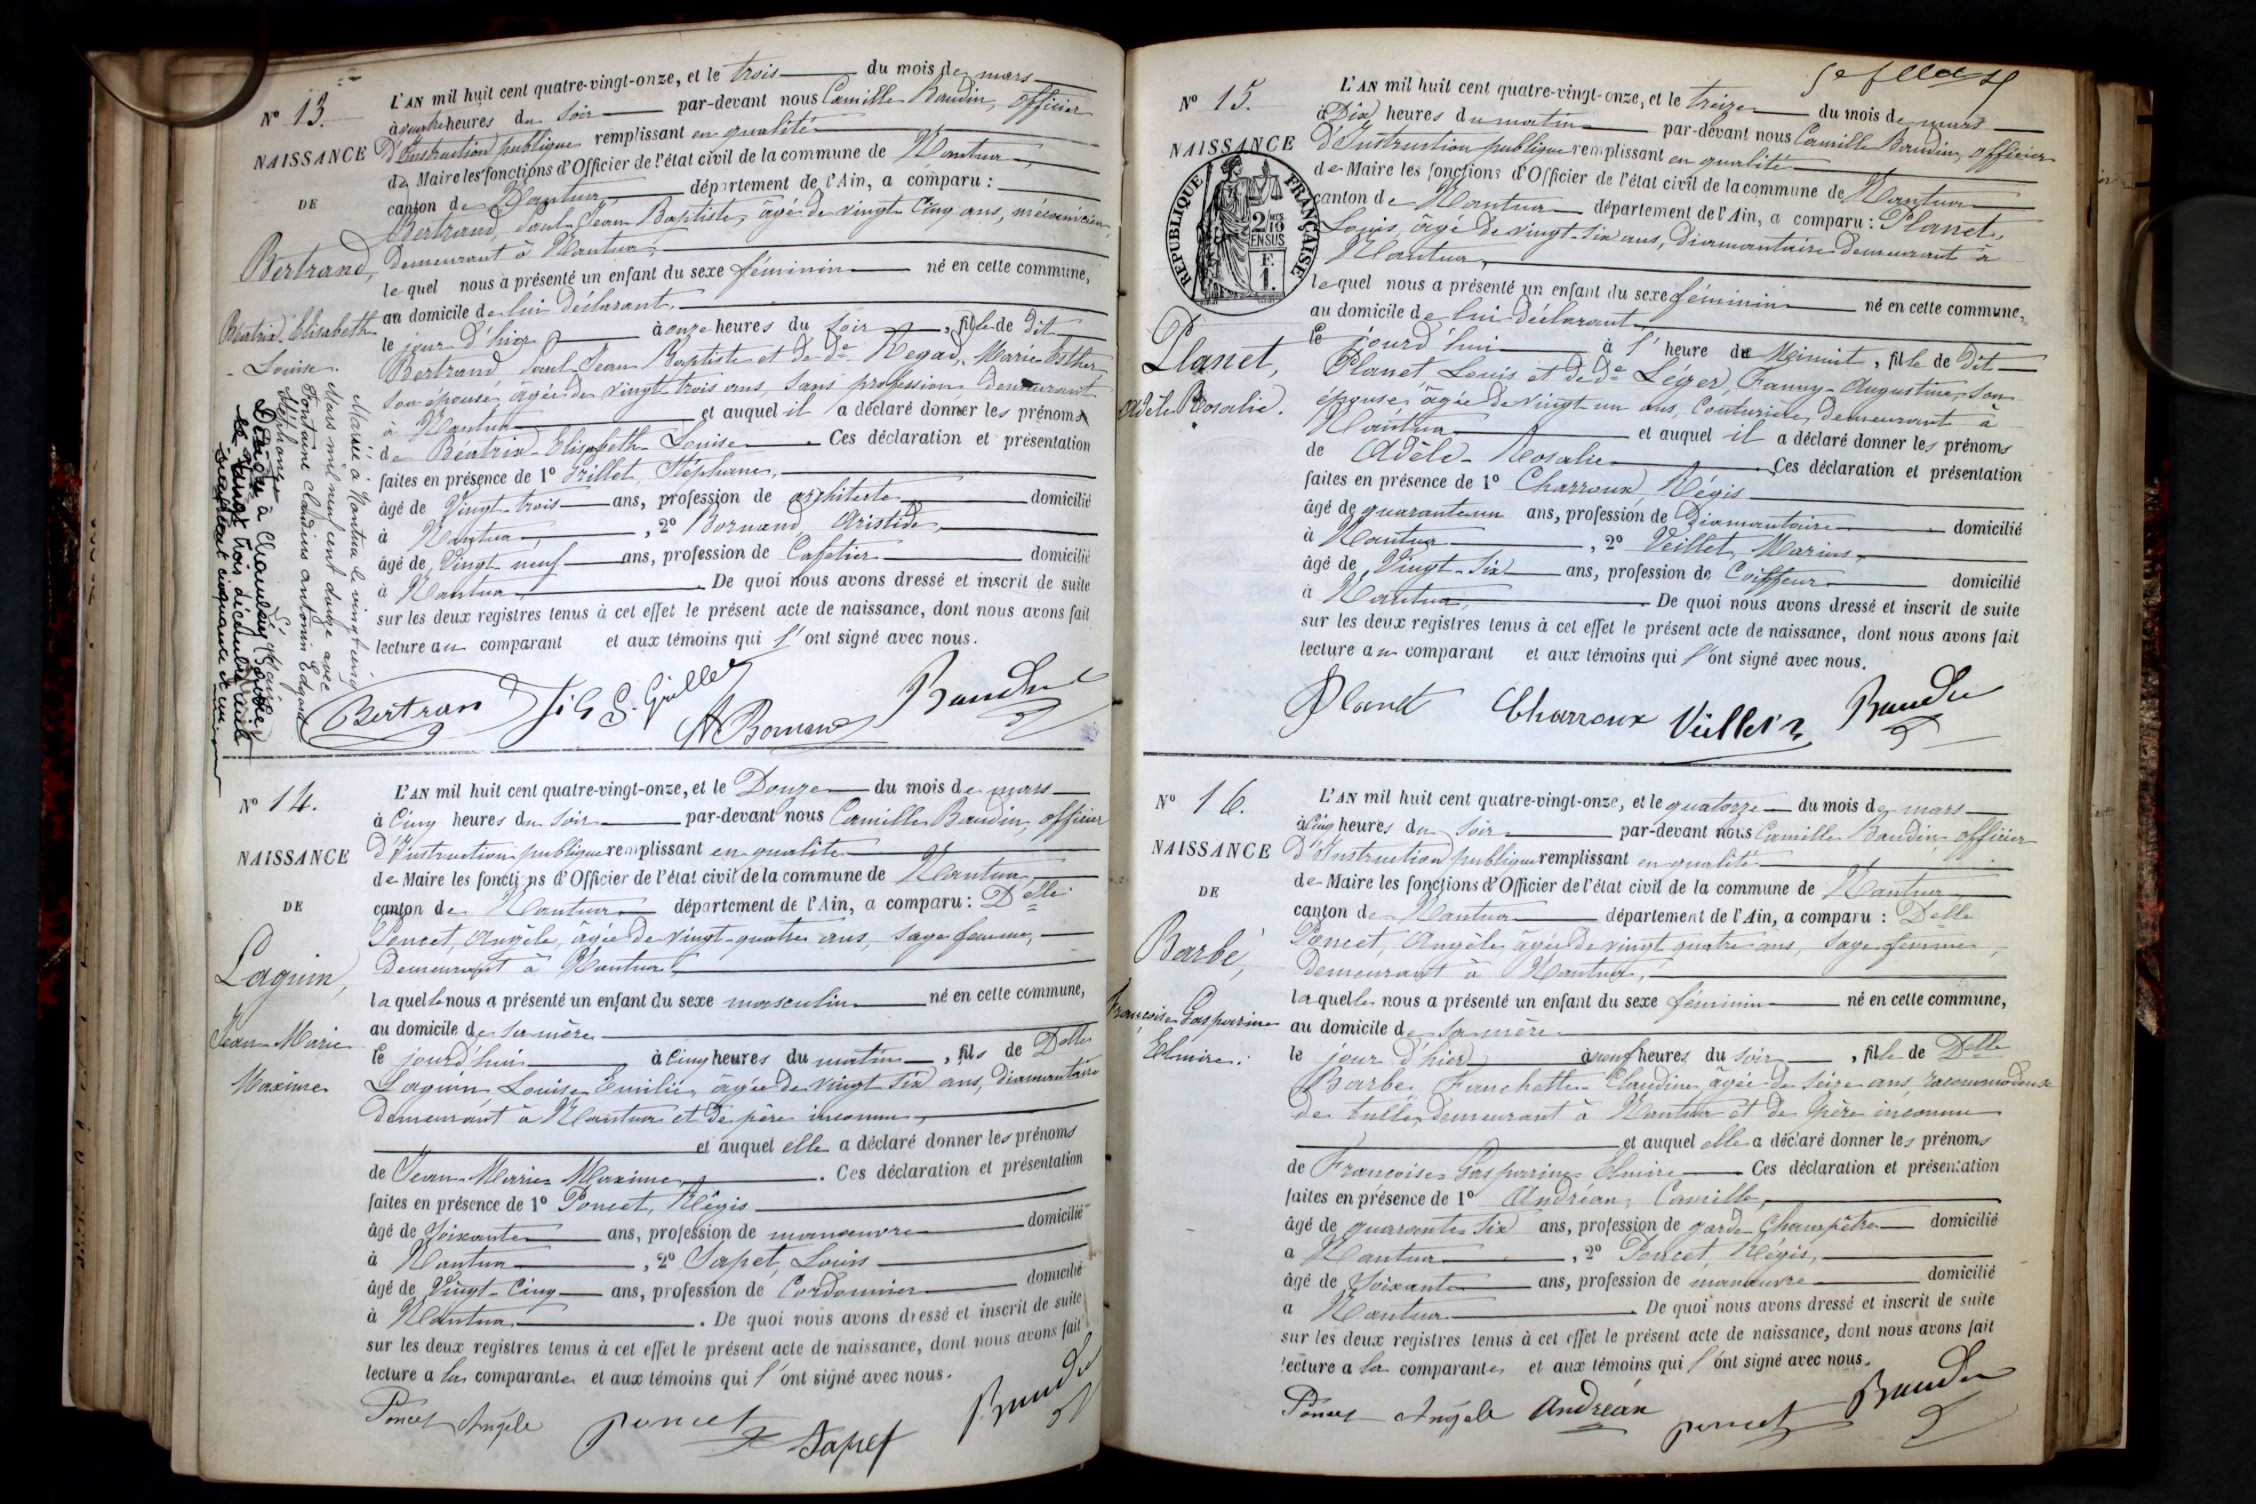 Nº 13.
NAISSANCE
DE
Bertrand,
Béatrix Elisabeth
Louise.
L'AN mil huit cent quatre-vingt-onze, et le trois du mois de mars
à quatre heures du soir par-devant nous Camille Baudin, officier
d'Instruction publique remplissant en qualité
de Maire les fonctions d'Officier de l'état civil de la commune de Nantua,
canton de Nantua département de l'Ain, a comparu :
Bertrand, Paul Jean Baptiste, âgé de vingt cinq ans, mécanicien,
demeurant à Nantua,
lequel nous a présenté un enfant du sexe féminin né en cette commune,
au domicile de lui déclarant,
le jour d'hier à onze heures du soir, fille de dit
Bertrand Paul Jean Baptiste et de de Regad, Marie Esther
son épouse, âgée de vingt trois ans, sans profession, demeurant
à Nantua et auquel il a déclaré donner les prénoms
de Béatrix Elisabeth Louise. Ces déclaration et présentation
faites en présence de 1º Grillet, Stéphane,
âgé de Vingt trois ans, profession de architecte domicilié
à Nantua, 2º Bornand, Aristide,
âgé de Vingt neuf ans, profession de Cafetier domicilié
à Nantua. De quoi nous avons dressé et inscrit de suite
sur les deux registres tenus à cet effet le présent acte de naissance, dont nous avons fait
lecture au comparant et aux témoins qui l'ont signé avec nous.
Mariée à Nantua le vingt cinq
Mars mil neuf cent douze avec
Fontaine Claudius Antonin Edgard
Stéphane
Bertrand fils S. Grillet
A Bornand
Baudin
Nº 14.
NAISSANCE
DE
Laguin,
Jean Marie
Maxime
L'AN mil huit cent quatre-vingt-onze, et le Douze du mois de mars
à Cinq heures du soir par-devant nous Camille Baudin, officier
d'Instruction publique remplissant en qualité
de Maire les fonctions d'Officier de l'état civil de la commune de Nantua
canton de Nantua département de l'Ain, a comparu : Delle
Poncet, Angèle, âgée de vingt-quatre ans, sage femme,
demeurant à Nantua,
laquelle nous a présenté un enfant du sexe masculin né en cette commune,
au domicile de sa mère
le jourd'hui à Cinq heures du matin, fils de Delle
Laguin Louise Emilie, âgée de vingt six ans, diamantaire
demeurant à Nantua et de père inconnu,
et auquel elle a déclaré donner les prénoms
de Jean Marie Maxime. Ces déclaration et présentation
faites en présence de 1º Poncet, Régis
âgé de Soixante ans, profession de manœuvre domicilié
à Nantua, 2º Sapet, Louis
âgé de Vingt-Cinq ans, profession de Cordonnier domicilié
à Nantua. De quoi nous avons dressé et inscrit de suite
sur les deux registres tenus à cet effet le présent acte de naissance, dont nous avons fait
lecture a la comparante et aux témoins qui l'ont signé avec nous.
Poncet Angèle poncet Sapet Baudin
Nº 15.
NAISSANCE
RÉPUBLIQUE FRANÇAISE
2/10 EN SUS
F. 1.
Planet,
Adèle Rosalie.
L'AN mil huit cent quatre-vingt-onze, et le treize du mois de mars
à Dix heures du matin par-devant nous Camille Baudin, officier
d'Instruction publique remplissant en qualité
de Maire les fonctions d'Officier de l'état civil de la commune de Nantua
canton de Nantua département de l'Ain, a comparu : Planet,
Louis, âgé de vingt-six ans, diamantaire demeurant à
Nantua,
lequel nous a présenté un enfant du sexe féminin né en cette commune,
au domicile de lui déclarant,
le jourd'hui à l'heure de Minuit, fille de dit
Planet, Louis et de de Léger, Fanny-Augustine, son
épouse, âgée de vingt un ans, couturière, demeurant à
Nantua et auquel il a déclaré donner les prénoms
de Adèle-Rosalie. Ces déclaration et présentation
faites en présence de 1º Charroux, Régis
âgé de quarante un ans, profession de Diamantaire domicilié
à Nantua, 2º Veillet, Marius,
âgé de Vingt-six ans, profession de Coiffeur domicilié
à Nantua, De quoi nous avons dressé et inscrit de suite
sur les deux registres tenus à cet effet le présent acte de naissance, dont nous avons fait
lecture au comparant et aux témoins qui l'ont signé avec nous.
Planet Charroux Veillet Baudin
Nº 16.
NAISSANCE
DE
Barbé,
Françoise Gasparine
Elmire.
L'AN mil huit cent quatre-vingt-onze, et le quatorze du mois de mars
à Cinq heures du soir par-devant nous Camille Baudin, officier
d'Instruction publique remplissant en qualité
de Maire les fonctions d'Officier de l'état civil de la commune de Nantua
canton de Nantua département de l'Ain, a comparu : Delle
Poncet, Angèle, âgée de vingt quatre ans, sage femme,
demeurant à Nantua,
laquelle nous a présenté un enfant du sexe féminin né en cette commune,
au domicile de sa mère
le jour d'hier à neuf heures du soir, fille de Delle
Barbé Fanchette Claudine, âgée de seize ans, raccommodeuse
de tulle, demeurant à Nantua et de père inconnu
et auquel elle a déclaré donner les prénoms
de Françoise Gasparine Elmire Ces déclaration et présentation
faites en présence de 1º Andréan, Camille,
âgé de quarante six ans, profession de garde Champêtre domicilié
a Nantua, 2º Poncet, Régis,
âgé de Soixante ans, profession de manœuvre domicilié
a Nantua. De quoi nous avons dressé et inscrit de suite
sur les deux registres tenus à cet effet le présent acte de naissance, dont nous avons fait
lecture a la comparante et aux témoins qui l'ont signé avec nous.
Poncet Angèle Andréan poncet Baudin